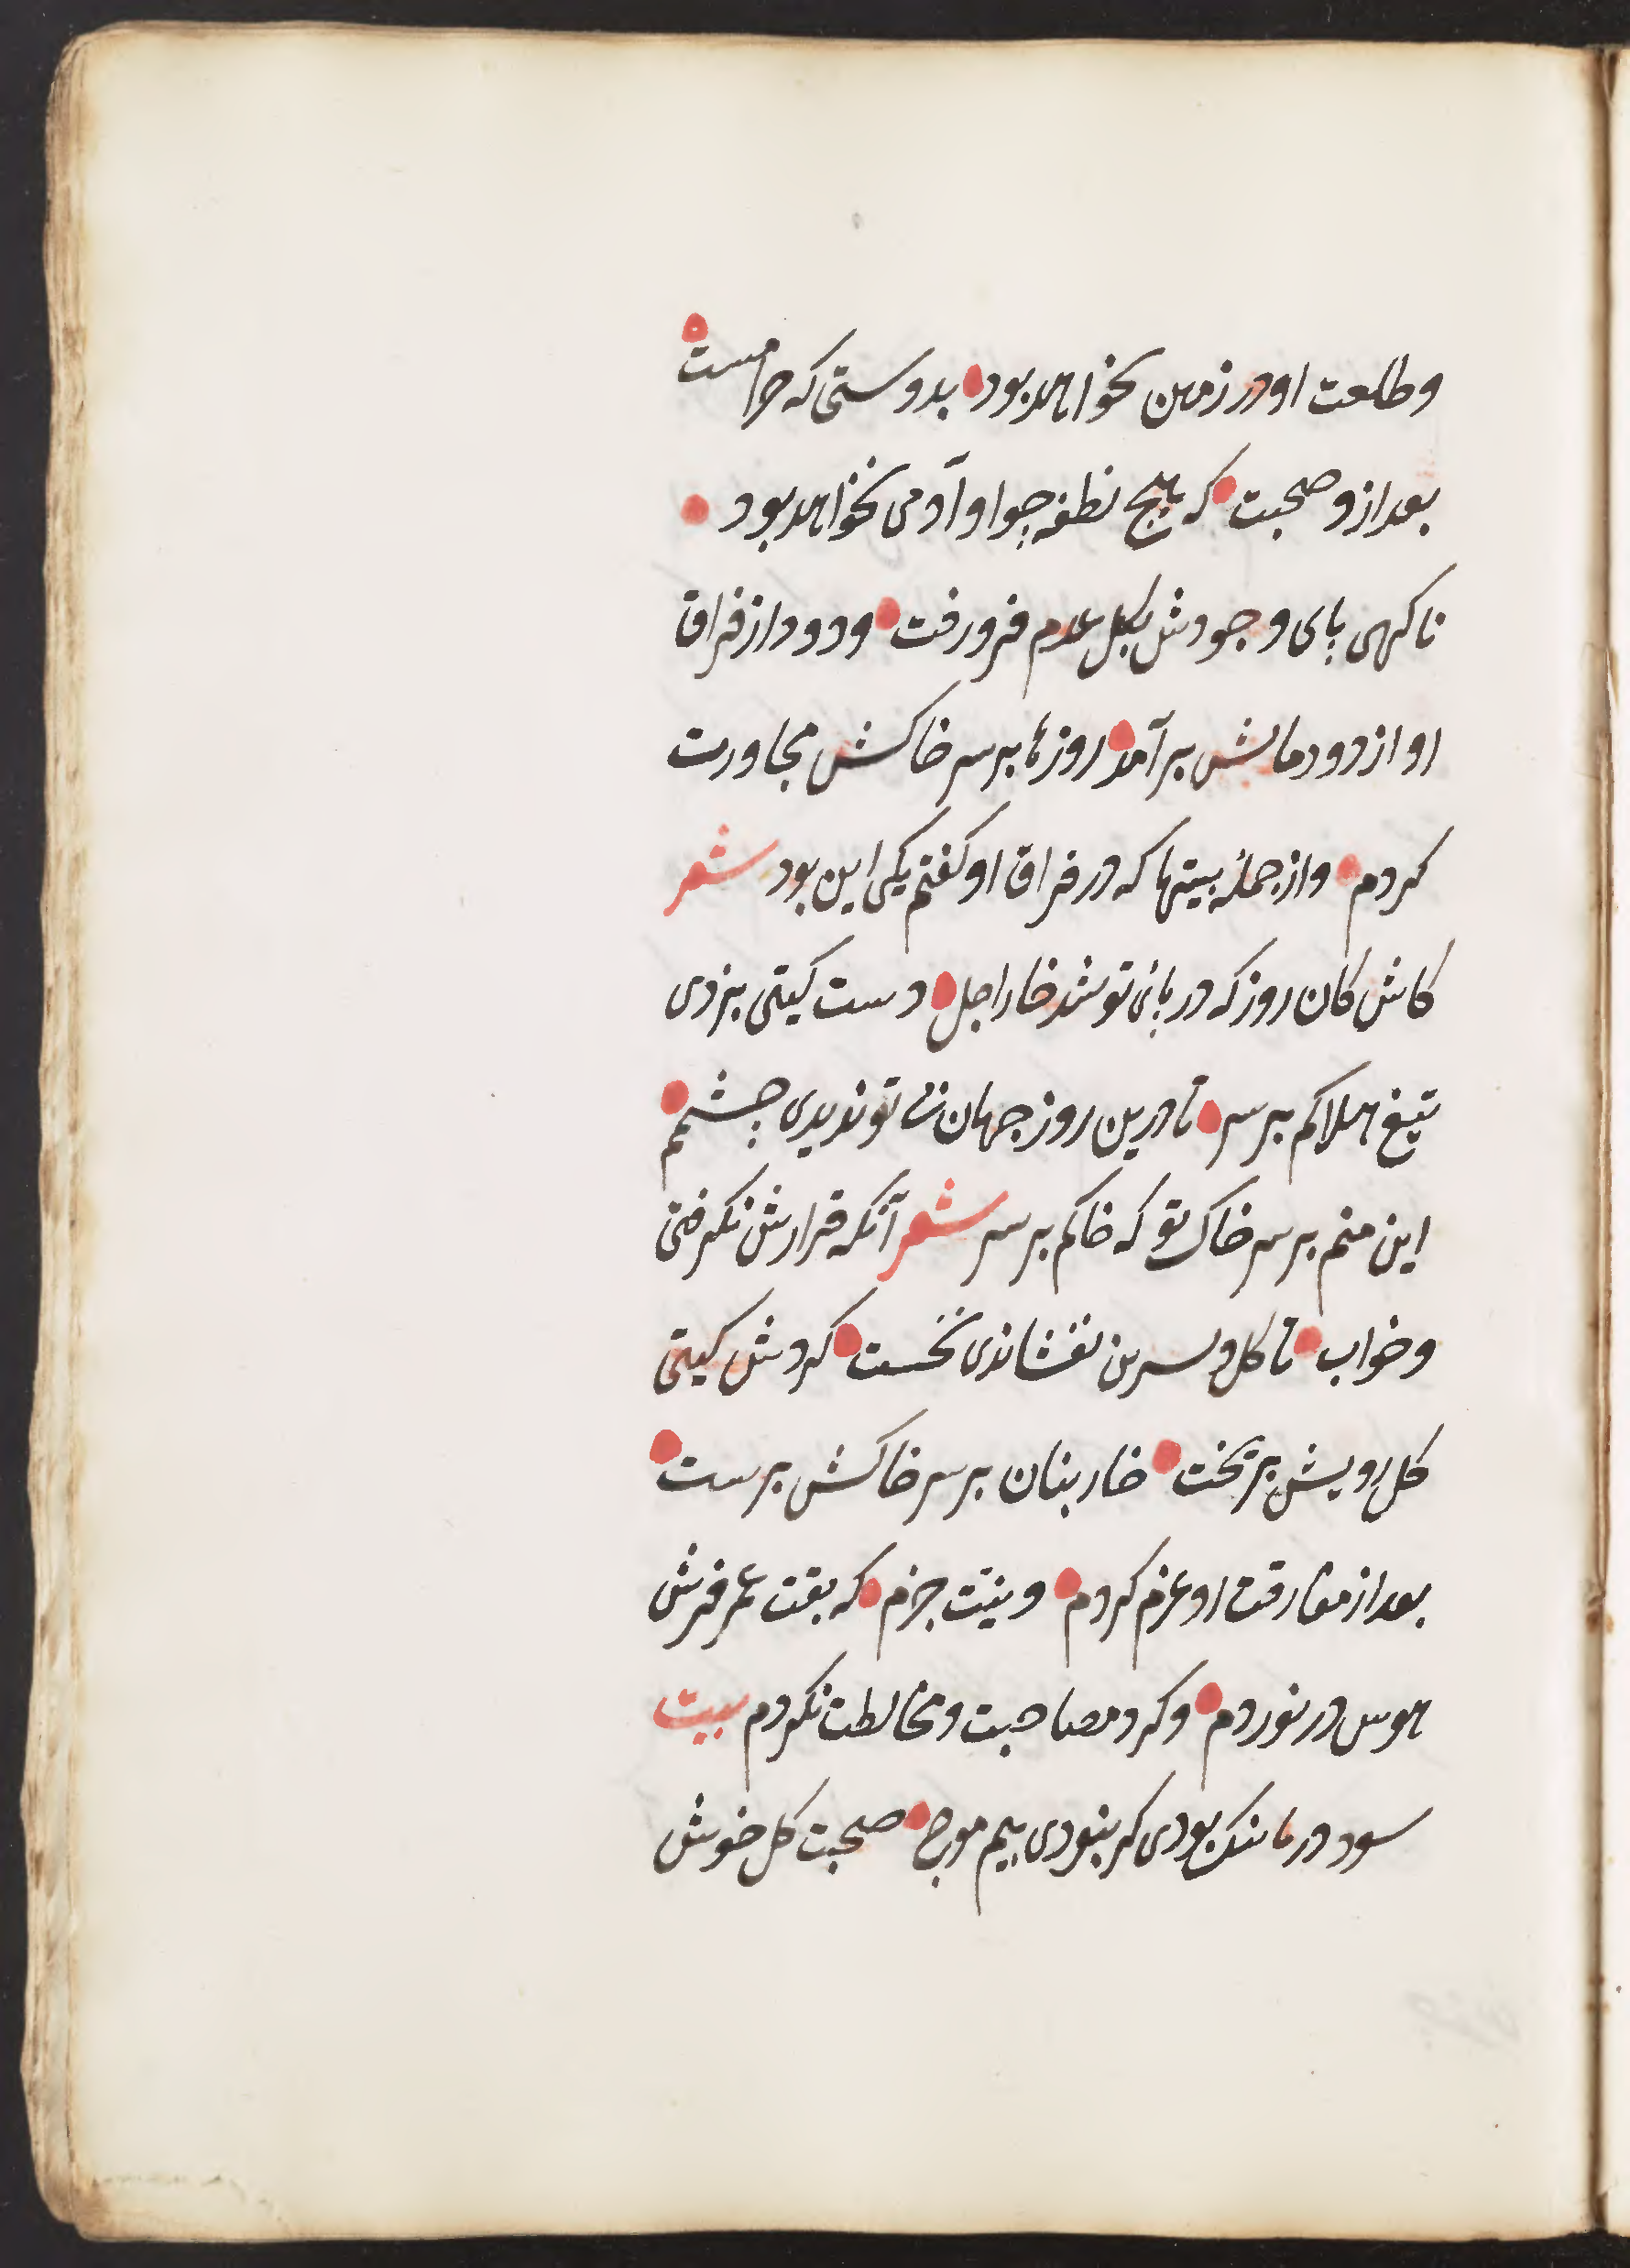 وطلعت او در زمین نخواهد بود بدوستی که حرامست
بعد ازو صحبت که هیچ نطفه چو او آدمی نخواهد بود
ناکهی پای وجودش بکل عدم فرو رفت و دود از فراق
او از دودمانش برآمد روزها بر سر خاکش مجاورت
کردم واز جملهٔ بیتها که در فراق او کفتم یکی این بود شعر
کاش کان روز که در پای تو شد خار اجل دست کیتی بزدی
تیغ هلاکم بر سر تا درین روز جهان بی تو ندیدی چشمم
این منم بر سر خاک تو که خاکم بر سر شعر آنکه قرارش نکرفتی
و خواب تا کل و نسرین نفشاندی نخست کردش کیتی
کل رویش بریخت خار بنان بر سر خاکش برست
بعد از مفارقت او عزم کردم و نیت جزم که بقیت عمر فرش
هوس در نوردم و کرد مصاحبت و مخالطت نکردم بیت
سود دریا نیک بودی کر نبودی بیم موج صحبت کل خوش